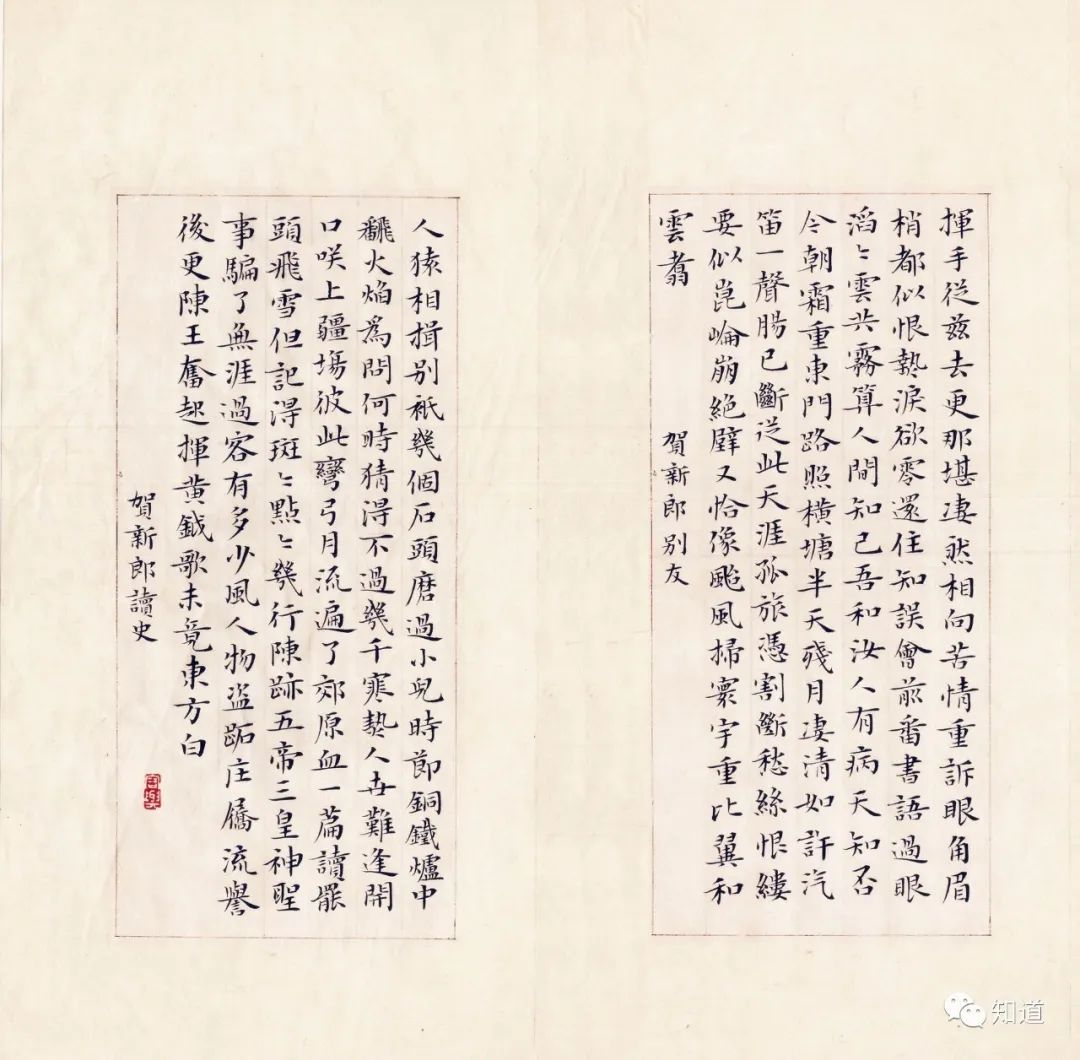 揮手從兹去更那堪凄然相向苦情重訴眼角眉
梢都似恨熱淚欲零還住知誤會前番書語過眼
滔〻雲共霧算人間知己吾和汝人有病天知否
今朝霜重東門路照橫塘半天殘月凄清如許汽
笛一聲腸已斷從此天涯孤旅憑割斷愁絲恨縷
要似崑崙崩絕壁又恰像颱風掃寰宇重比翼和
雲翥
賀新郎別友
人猿相揖別衹幾個石頭磨過小兒時節銅鐵爐中
翻火焰為問何時猜得不過幾千寒熱人世難逢開
口咲上疆場彼此彎弓月流遍了郊原血一篇讀罷
頭飛雪但記得斑〻點〻幾行陳跡五帝三皇神聖
事騙了無涯過客有多少風人物盜跖庄屩流譽
後更陳王奮起揮黄鉞歌未竟東方白
賀新郎讀史
知道